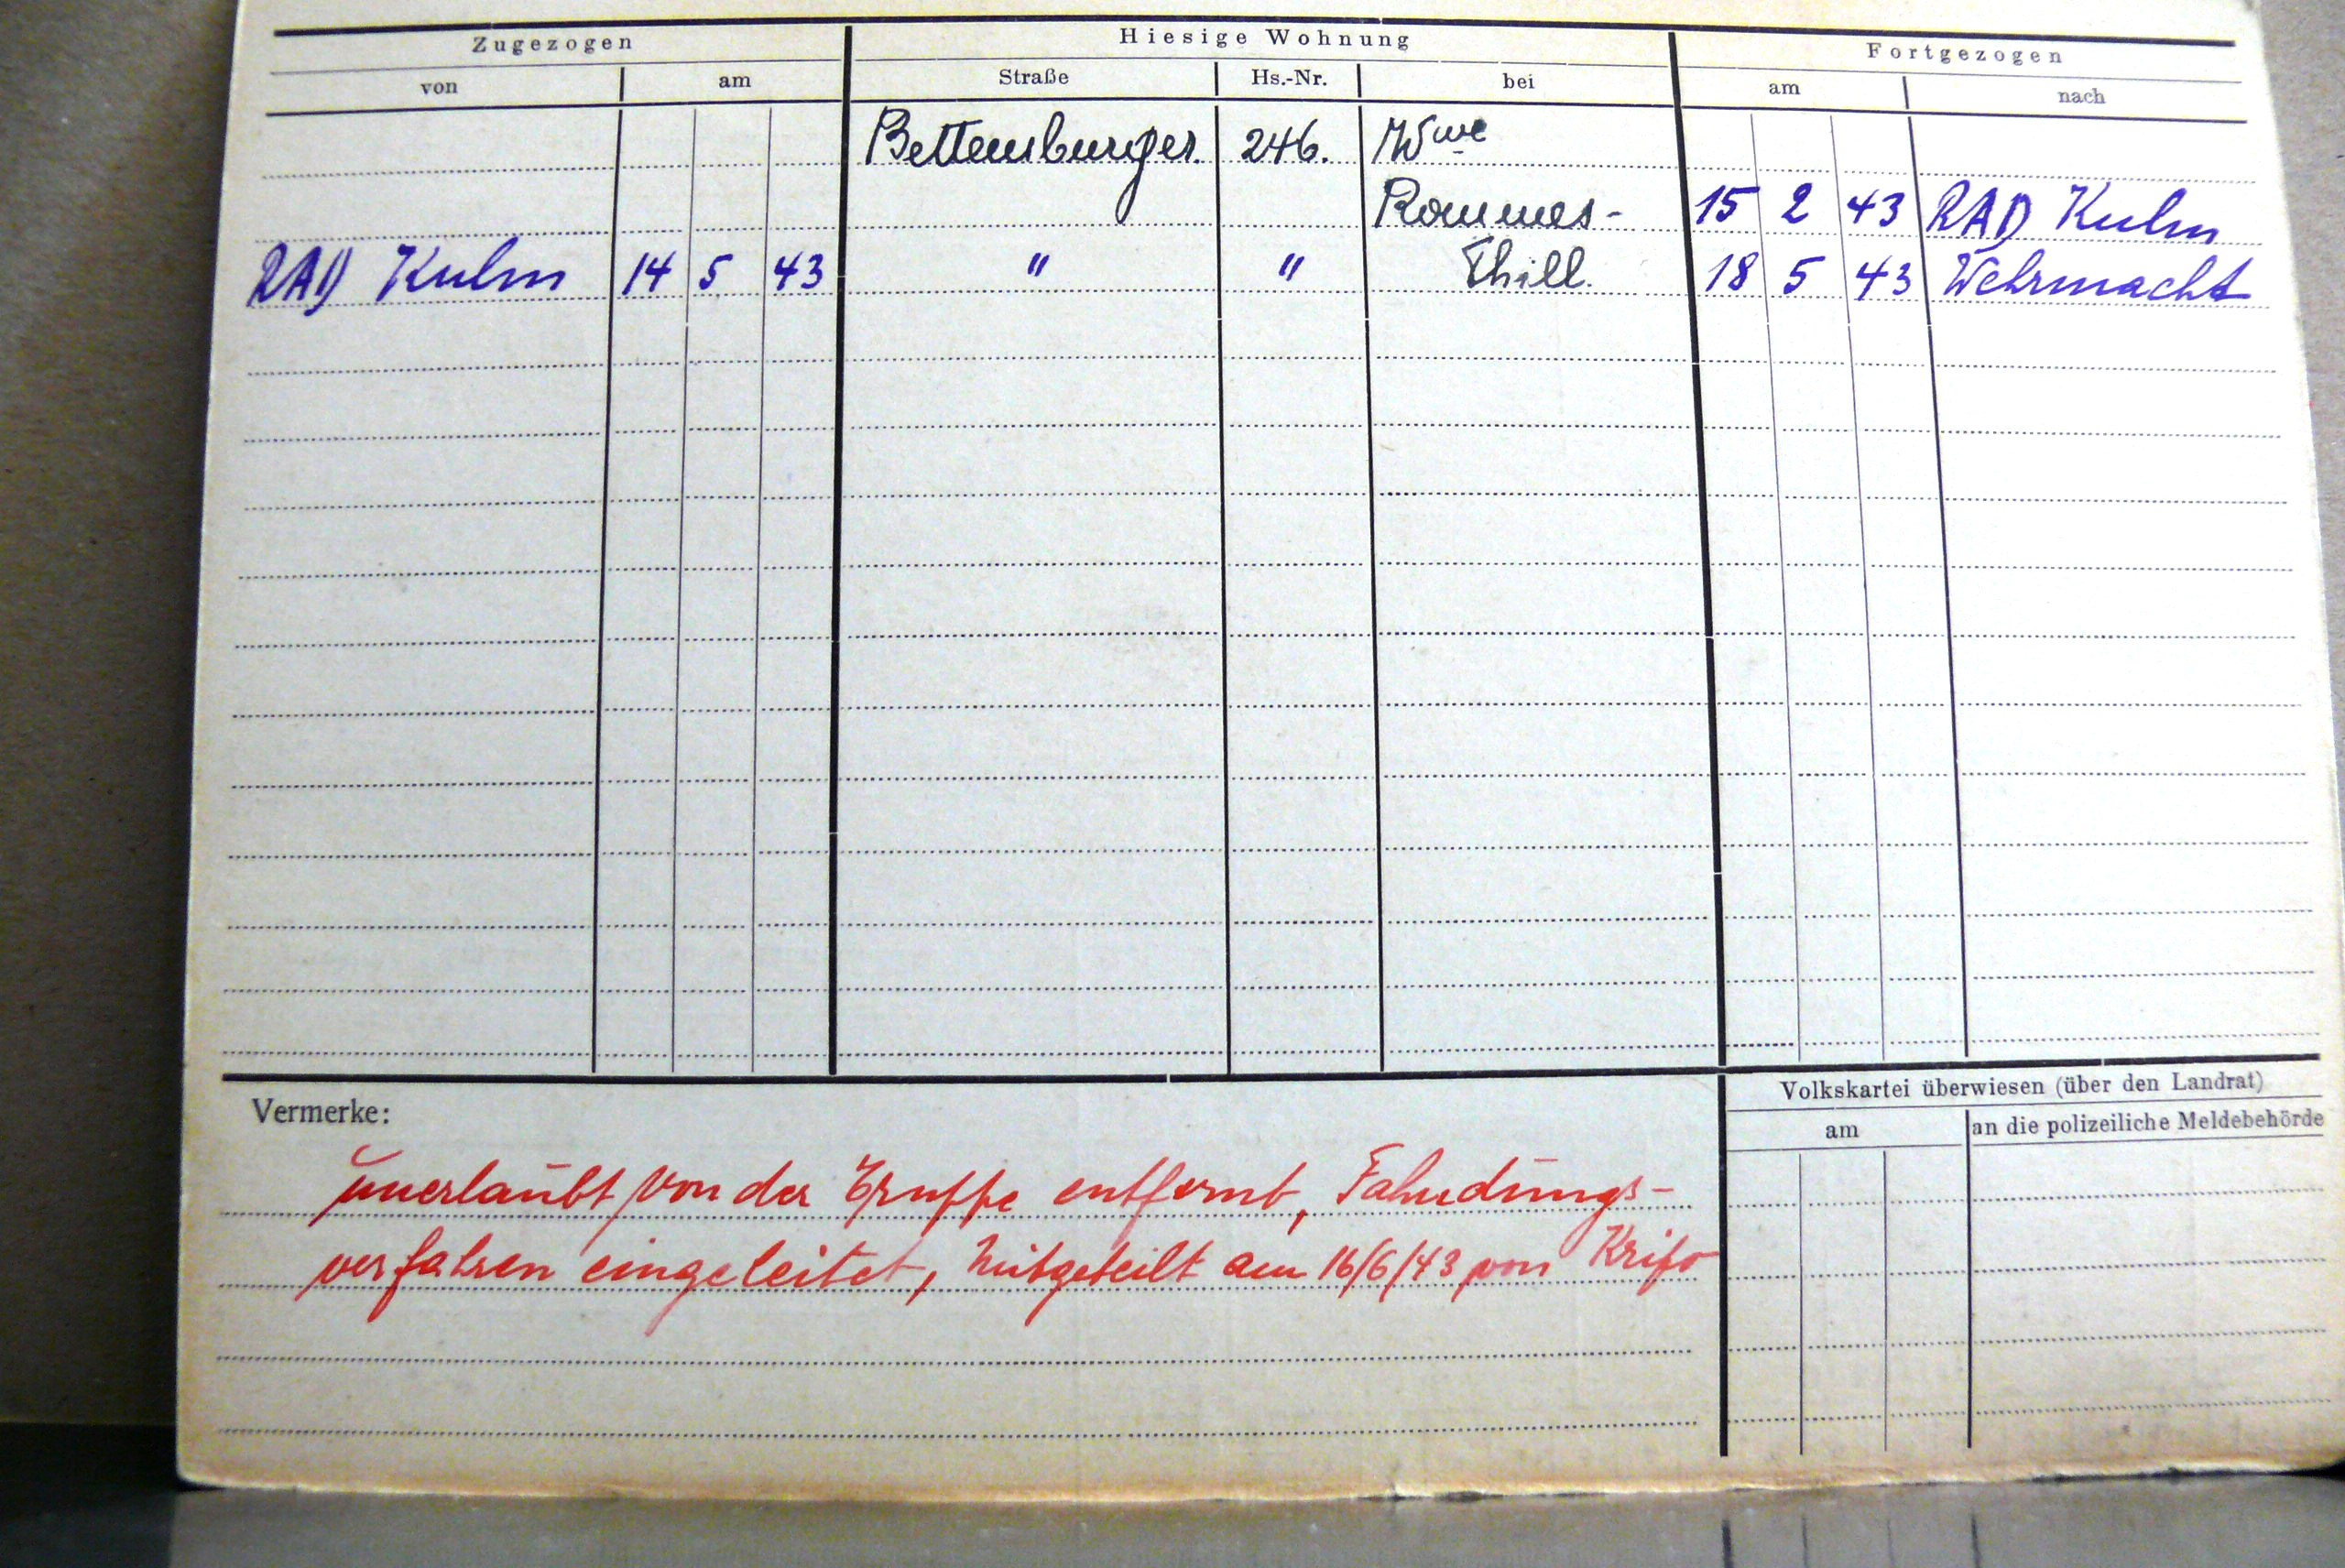 Zugezogen Hiesige Wohnung Fortgezogen
von am Straße Hs.-Nr. bei am nach
Bettemburger. 246. Wwe
Rommes- 15 2 43 RAD Kulm
RAD Kulm 14 5 43 " " Thill. 18 5 43 Wehrmacht
Vermerke:
unerlaubt von der Truppe entfernt, Fahndungs-
verfahren eingeleitet, mitgeteilt am 16/6/43 von Kripo
Volkskartei überwiesen (über den Landrat)
am an die polizeiliche Meldebehörde